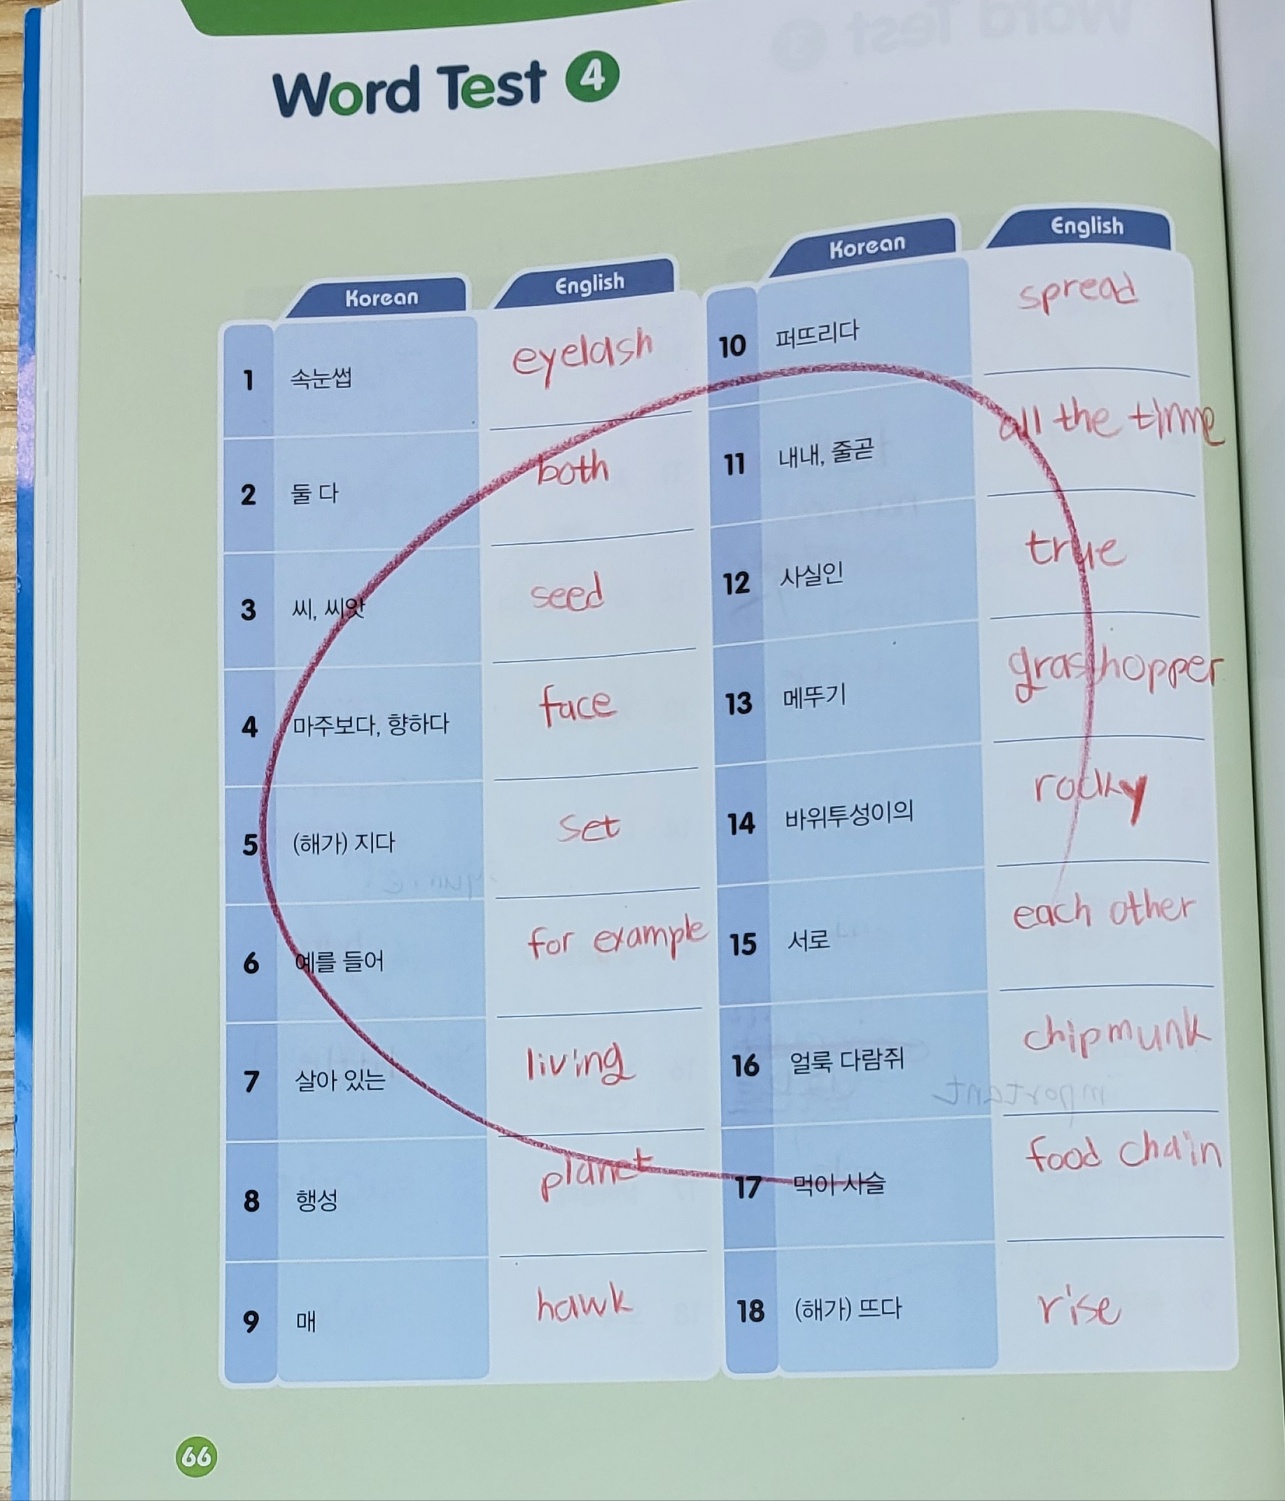 Word Test 4
Korean English
1 속눈썹 eyelash
2 둘 다 both
3 씨, 씨앗 seed
4 마주보다, 향하다 face
5 (해가) 지다 set
6 예를 들어 for example
7 살아 있는 living
8 행성 planet
9 매 hawk
Korean English
10 퍼뜨리다 spread
11 내내, 줄곧 all the time
12 사실인 true
13 메뚜기 grasshopper
14 바위투성이의 rocky
15 서로 each other
16 얼룩 다람쥐 chipmunk
17 먹이 사슬 food chain
18 (해가) 뜨다 rise
66